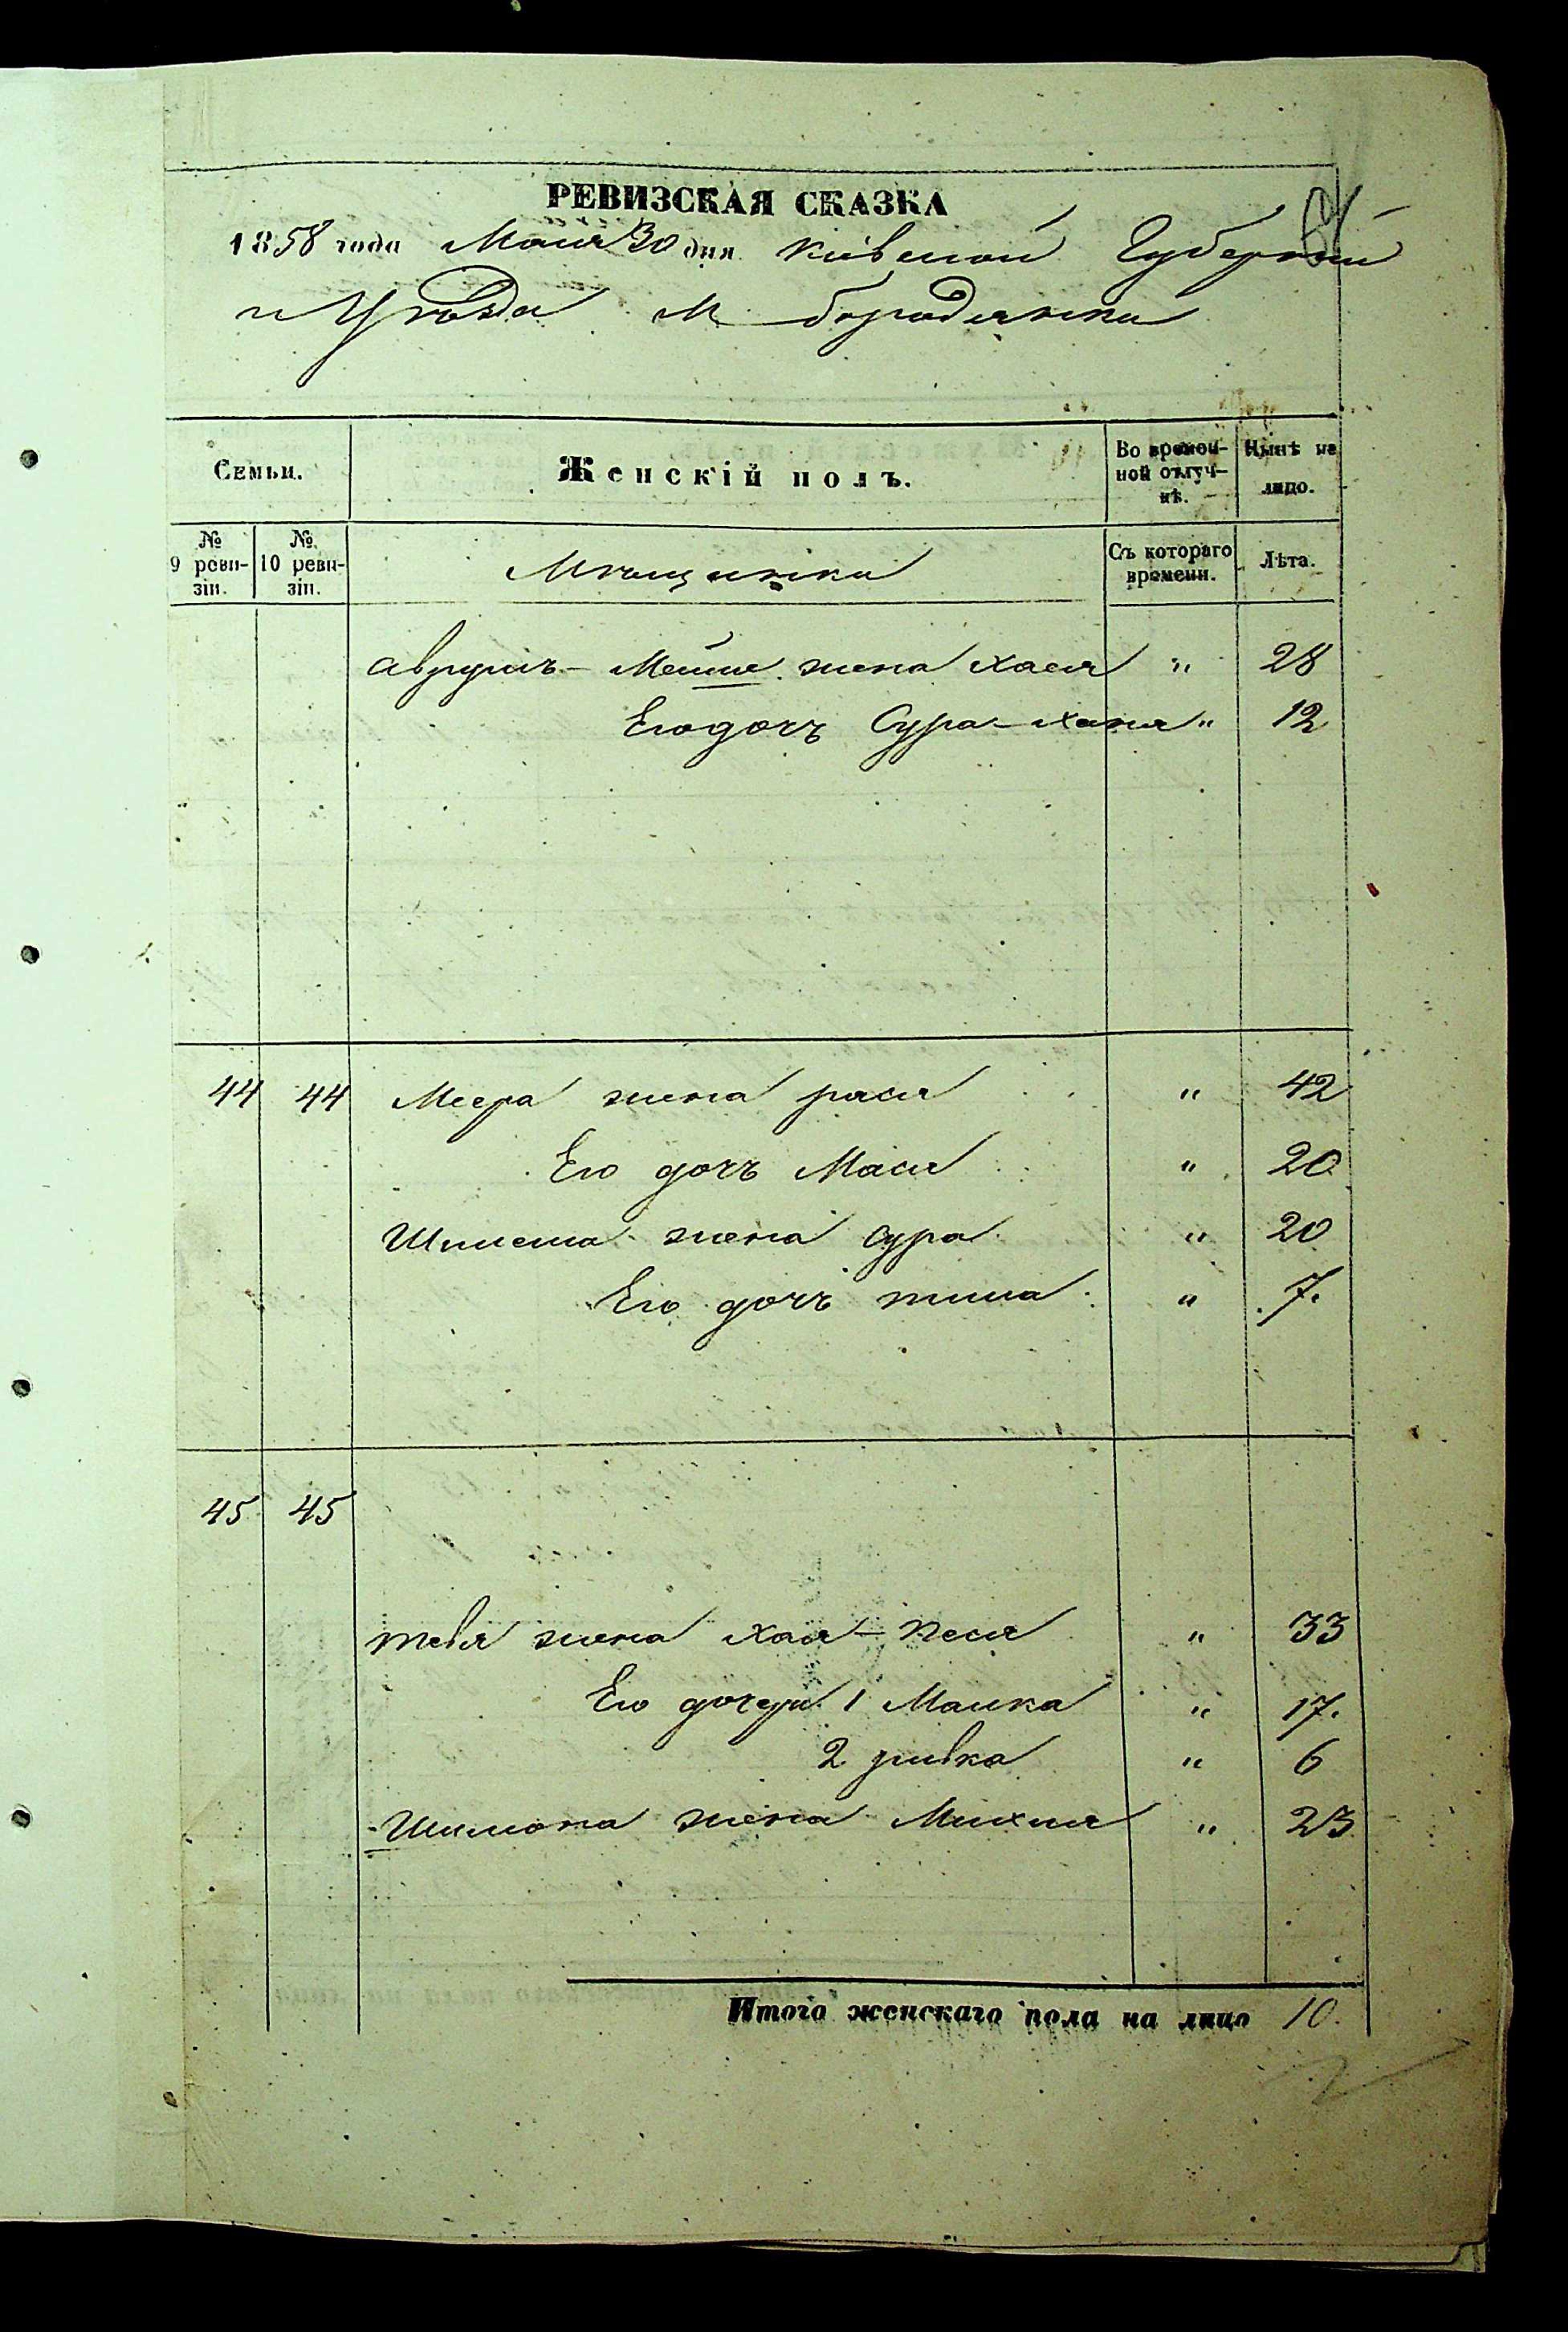 РЕВИЗСКАЯ СКАЗКА
1858 года Маия 30 дня Киевской Губернии
и Уѣзда М. бородянки
Семьи.
Женскій полъ.
Во времен-
ной отлуч-
кѣ.
Нынѣ на
лицо.
№
9 реви-
зіи.
№
10 реви-
зіи.
Мѣщанки
Съ котораго
времени.
Лѣта.
Аврумъ-Мейше жена Хася " 28
Его дочь Сура-Ханя " 12
44 44 Меера жена рася " 42
Его дочь Мася " 20
жена Сура " 20
Его дочь " 7.
45 45
тевя жена Хая-Песя " 33
Его дочери 1 Малка " 17.
2 ривка " 6
Шимона жена " 23
Итого женскаго пола на лицо 10.